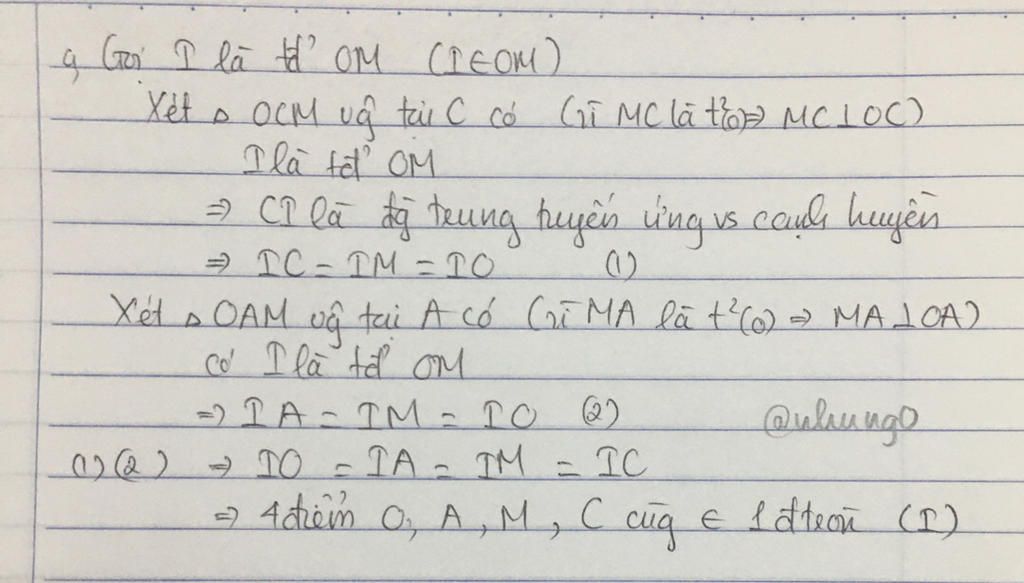 a, Gọi I là tđ' OM (I∈OM)
Xét △ OCM vĝ tại C có (vì MC là t²(O) ⇒ MC⊥OC)
I là tđ' OM
⇒ CI là đg̀ trung tuyến ứng vs cạnh huyền
⇒ IC = IM = IO (1)
Xét △ OAM vĝ tại A có (vì MA là t²(O) ⇒ MA⊥OA)
có I là tđ' OM
⇒ IA = IM = IO (2)
@uhung0
(1)(2) ⇒ IO = IA = IM = IC
⇒ 4 điểm O, A, M, C cùg ∈ 1 đtròn (I)